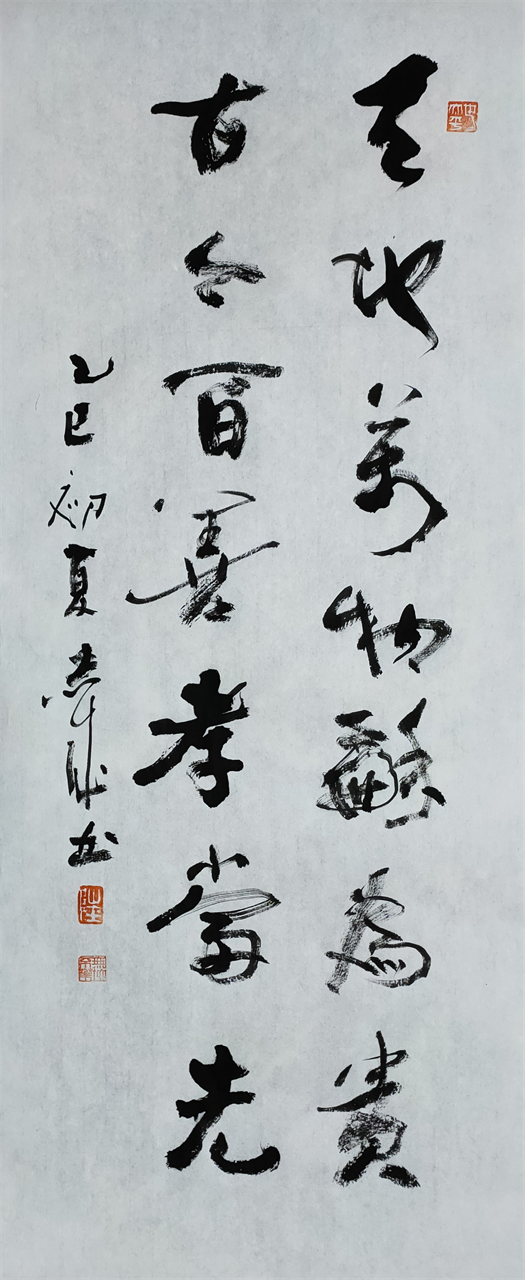 天地萬物龢為貴
古今百善孝當先
乙巳初夏志书